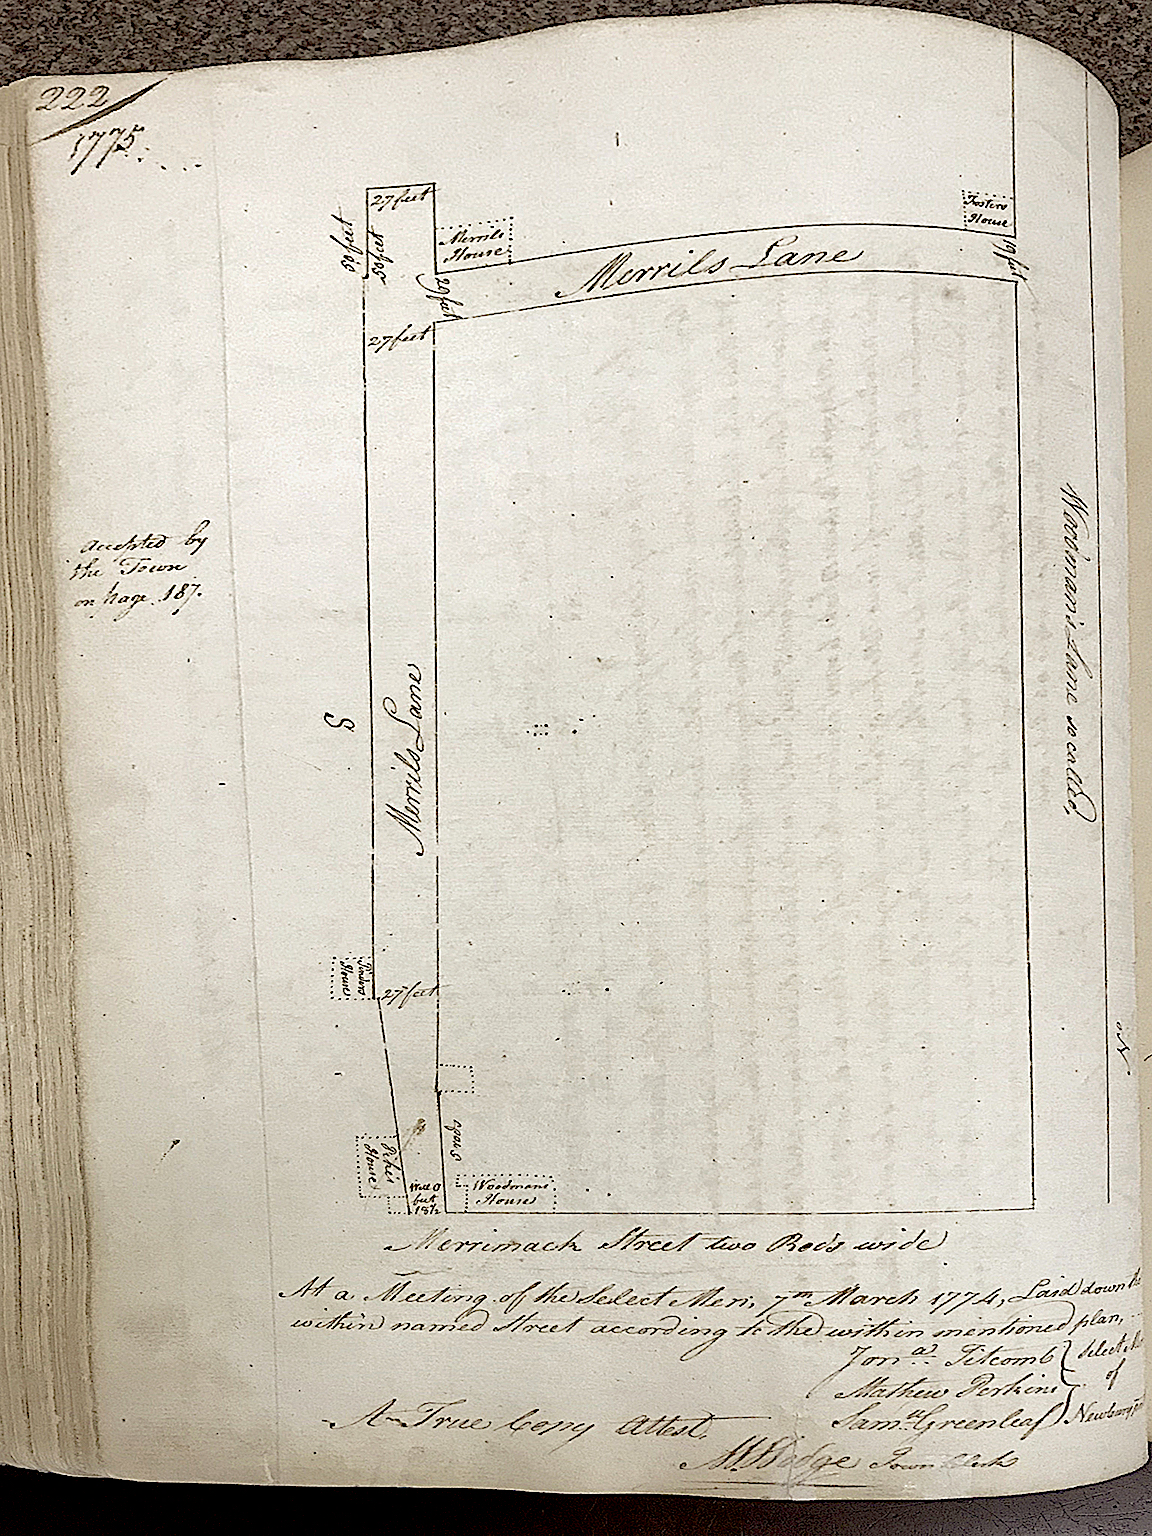 222
1775
27 feet
Merrils
House
Fosters
House
50 feet
50 feet
Merrils Lane
19 feet
20 feet
27 feet
Woodman's Lane so called,
accepted by
the Town
on page 187.
S
Merrils Lane
House
27 feet
N
Pikes
House
Well O
18½
Woodmans
House
Merrimack Street two Rods wide
At a Meeting of the Select Men, 7th March 1774, Laid down the
within named Street according to the within mentioned plan,
Jona Titcomb
Mathew Perkins
Saml Greenleaf
Select
of
A True Copy Attest,
M Hodge Town Clerk